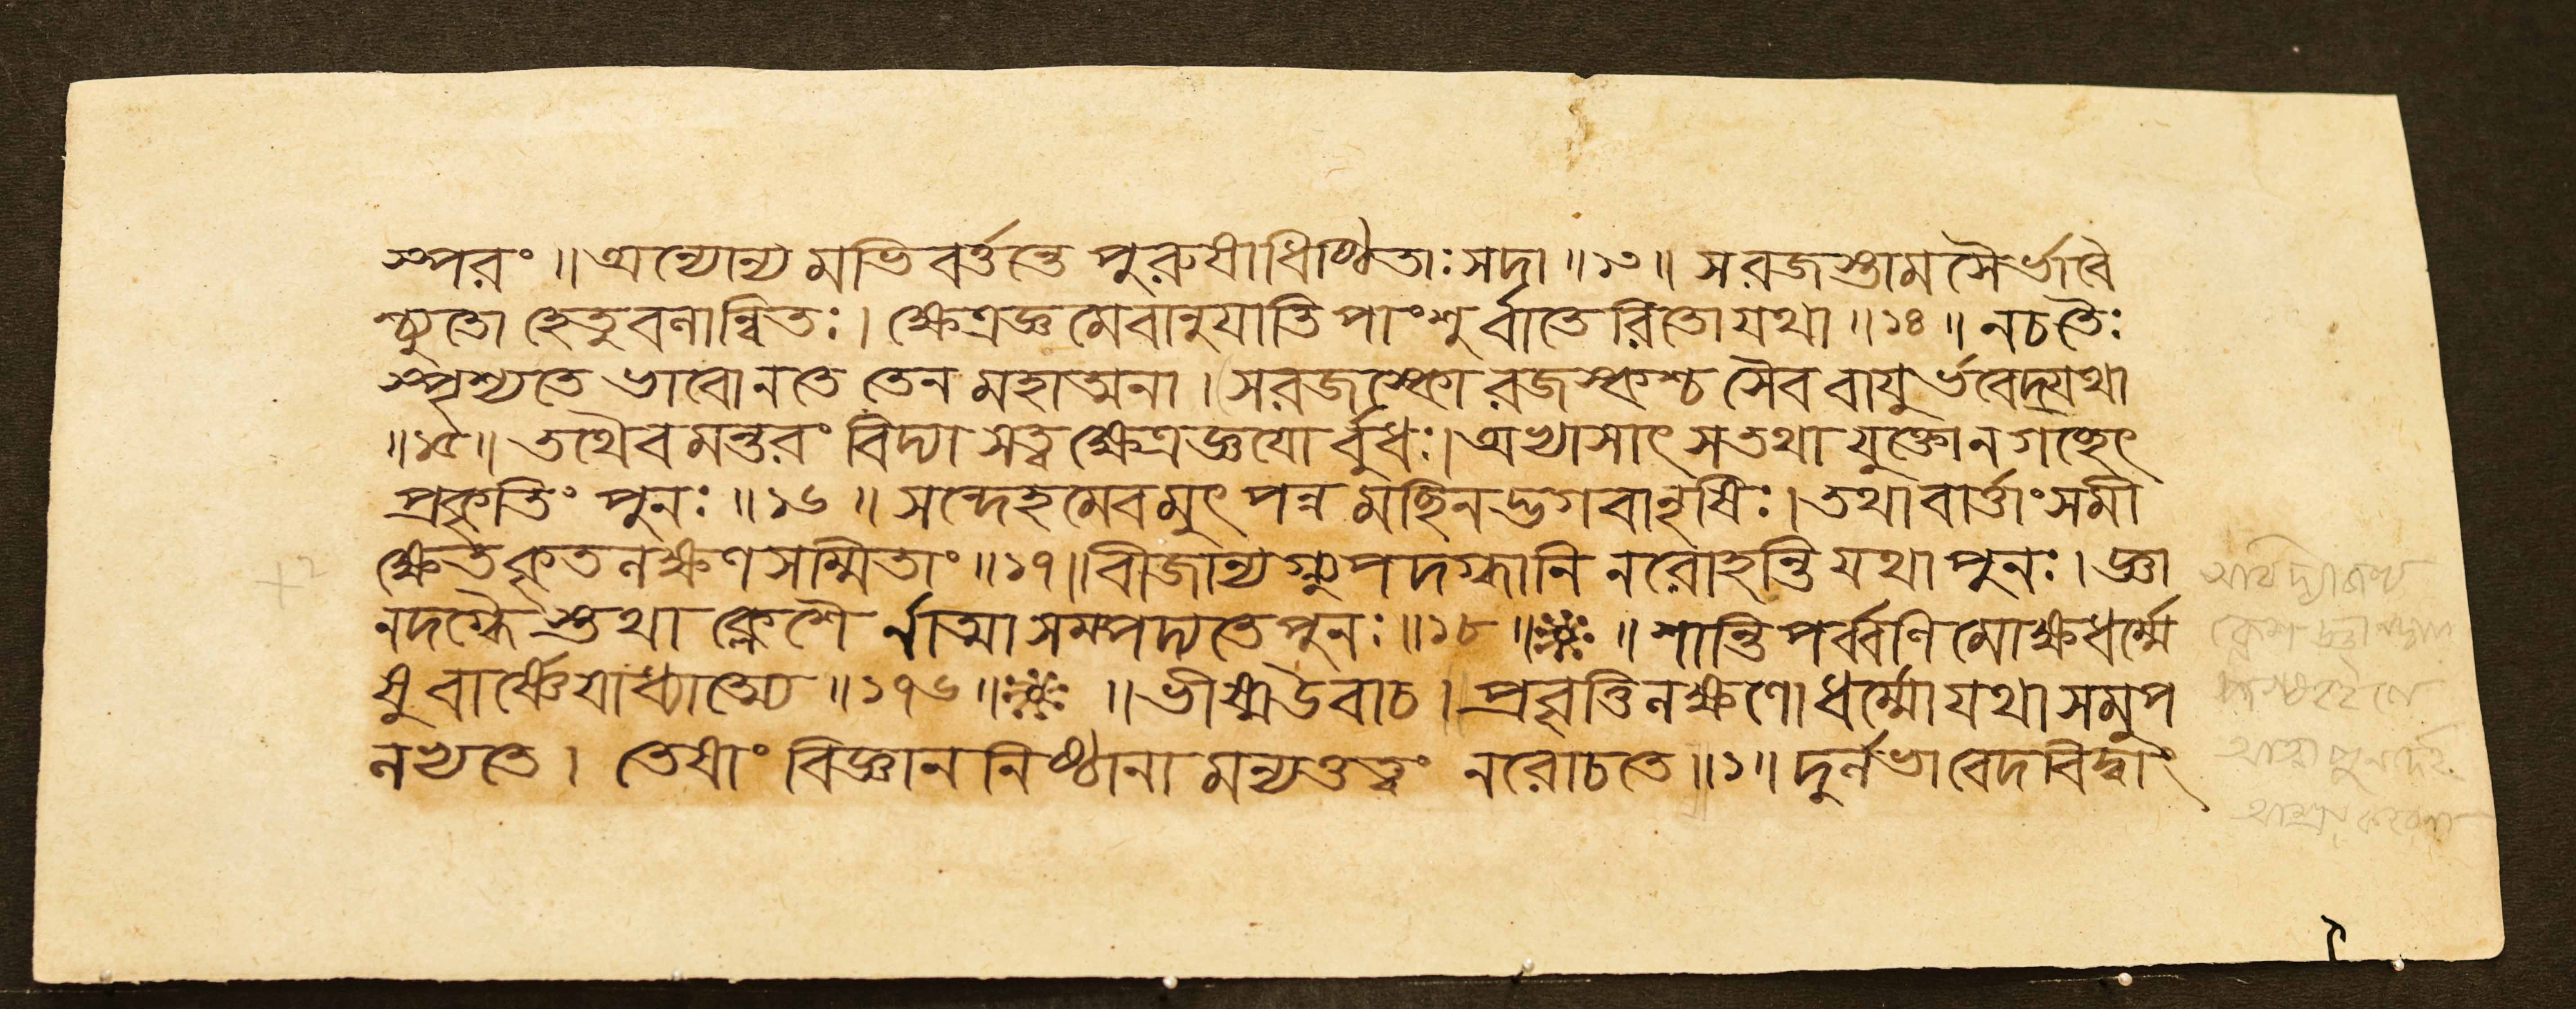 স্পরং ॥ অন্যোন্য মভি বর্ত্তন্তে পুরুষাধিষ্ঠিতাঃ সদা ॥১৩॥ সরজস্তামসৈর্ভাবৈ
শ্চ্যুতো হেতুবলান্বিতঃ। ক্ষেত্রজ্ঞ মেবানুযাতি পাংশু র্বাতেরিতো যথা ॥১৪॥ ন চ তৈঃ
স্পৃশ্যতে ভাবো ন তে তেন মহাত্মনা। সরজস্কো রজস্কশ্চ সৈব বায়ুর্ভবেদ্যথা
॥১৫॥ তথৈব মন্তরং বিদ্যা সত্বক্ষেত্রজ্ঞয়ো র্বুধঃ। অভ্যাসাৎ স তথা যুক্তো ন গচ্ছেৎ
প্রকৃতিং পুনঃ ॥১৬॥ সন্দেহমেবমুৎপন্ন মচ্ছিনদ্ভগবানৃষিঃ। তথা বার্ত্তাং সমী
ক্ষেত কৃতলক্ষণসম্মিতাং ॥১৭॥ বীজান্যগ্ন্যুপদগ্ধানি ন রোহন্তি যথা পুনঃ। জ্ঞা
নদগ্ধৈ স্তথা ক্লেশৈ র্নাত্মা সম্পদ্যতে পুনঃ ॥১৮॥ ॥ শান্তি পর্ব্বণি মোক্ষধর্ম্মে
ষু বার্ষ্ণেয়াধ্যাত্মে ॥১৭৬॥ ॥ ভীষ্ম উবাচ। প্রবৃত্তিলক্ষণো ধর্ম্মো যথা সমুপ
লভ্যতে। তেষাং বিজ্ঞাননিষ্ঠানা মন্যত্তত্বং ন রোচতে ॥১॥ দুর্লভা বেদবিদ্বাং